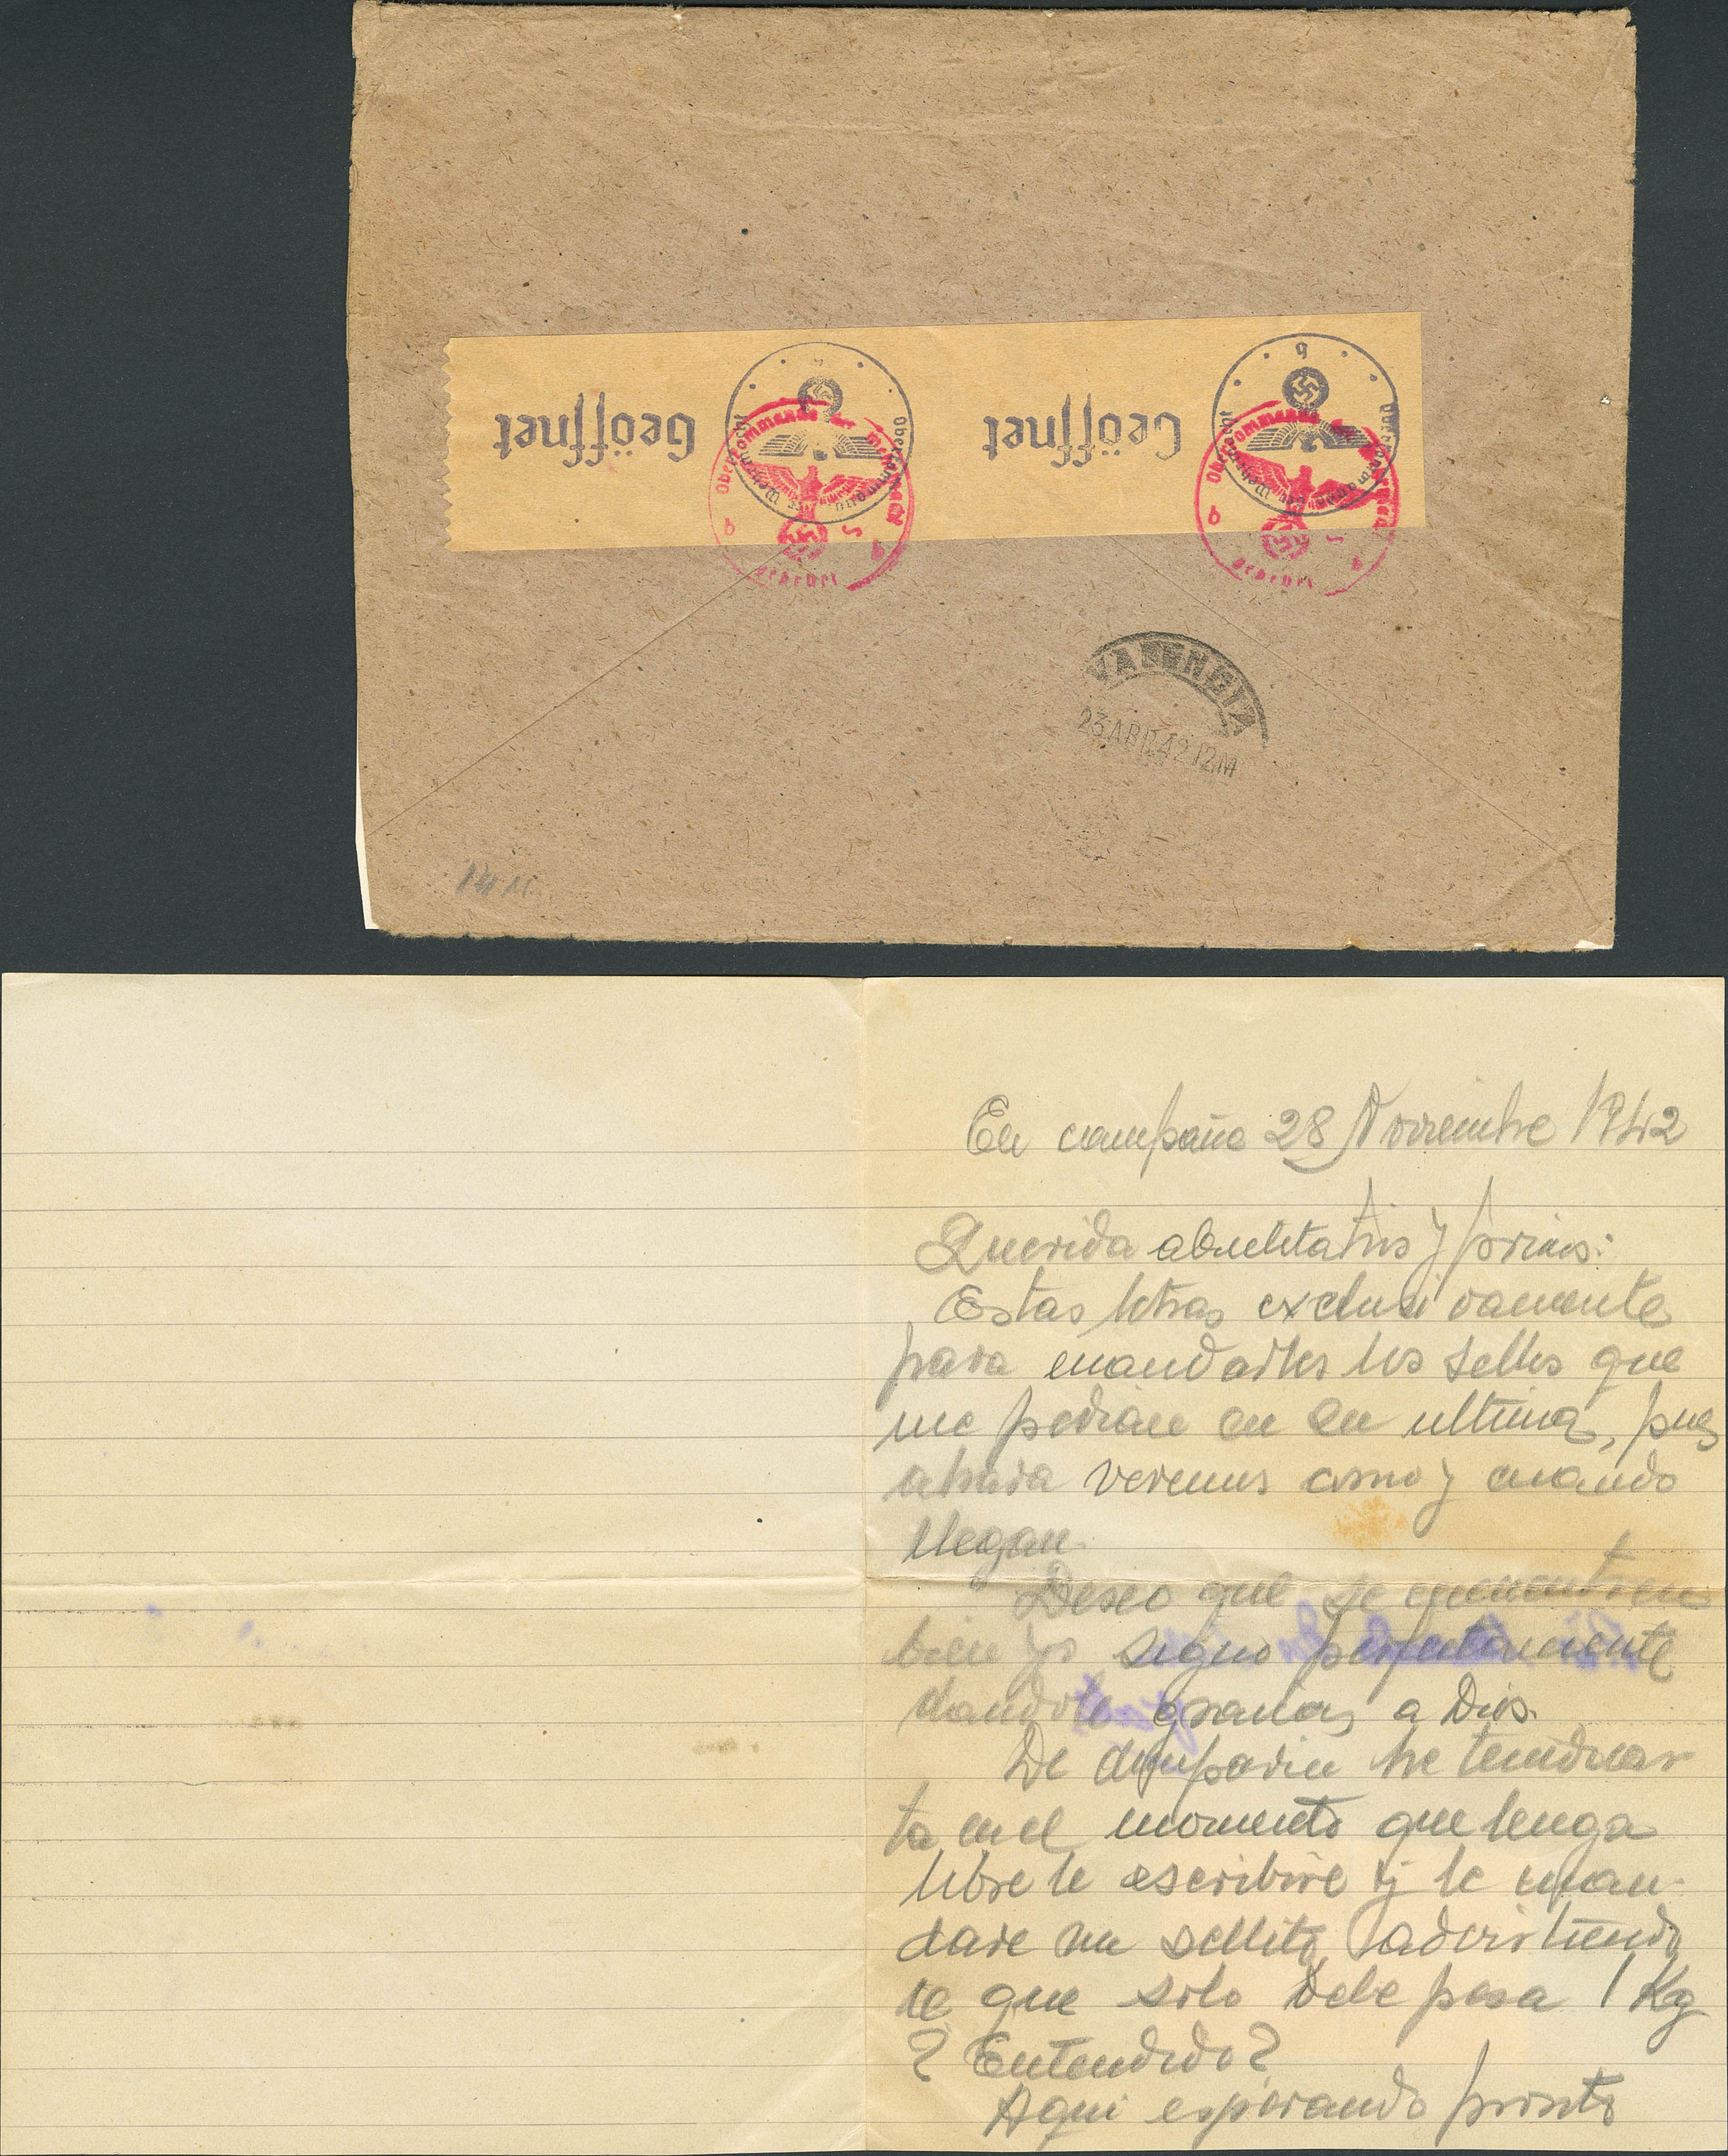 Geöffnet
Geöffnet
Oberkommando der Wehrmacht
g
Oberkommando der Wehrmacht
Oberkommando der Wehrmacht
b
b
geprüft
Oberkommando der Wehrmacht
b
b
geprüft
VALENCIA
23 ABR 42 12M
En campaña 28 Noviembre 1942
Querida abuelita tios y primos:
Estas letras exclusivamente
para mandarles los sellos que
me pedian en su ultima, pues
ahora veremos como y cuando
llegan.
Deseo que se encuentren
bien yo sigo perfectamente
dandole gracias a Dios.
De he tenido car
ta en el momento que tenga
libre le escribire y le man-
dare un sellito, advirtiendo
le que solo debe pesa 1 Kg
? Entendido?
Aqui esperando pronto